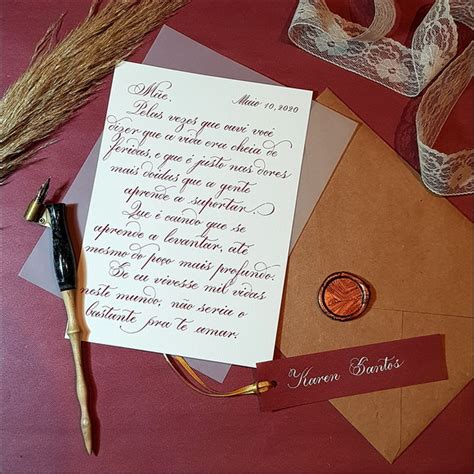 Maio 10, 2020
Mãe,
Pelas vezes que ouvi você
dizer que a vida era cheia de
feridas, e que é justo nas dores
mais doídas que a gente
aprende a suportar.
Que é caindo que se
aprende a levantar, até
mesmo do poço mais profundo.
Se eu vivesse mil vidas
neste mundo, não seria o
bastante pra te amar.
Karen Santos